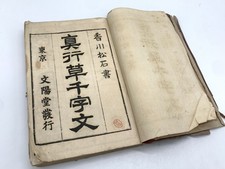 香川松石書
真行草千字文
東京 文陽堂發行